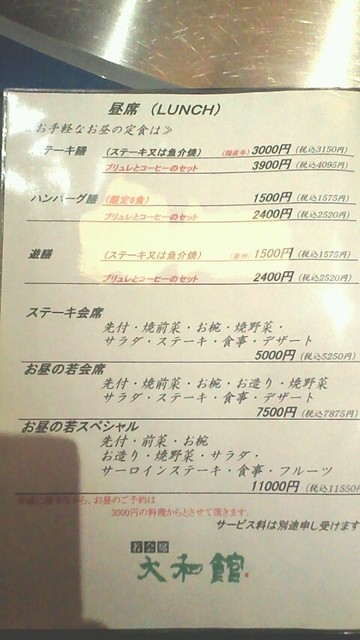 昼席 （LUNCH）
お手軽なお昼の定食は≫
テーキ膳 （ステーキ又は魚介焼） （国産牛） 3000円 （税込3150円）
ブリュレとコーヒーのセット 3900円 （税込4095円）
ハンバーグ膳 （限定6食） 1500円 （税込1575円）
ブリュレとコーヒーのセット 2400円 （税込2520円）
遊膳 （ステーキ又は魚介焼） 1500円 （税込1575円
ブリュレとコーヒーのセット 2400円 （税込2520円）
ステーキ会席
先付・焼前菜・お椀・焼野菜・
サラダ・ステーキ・食事・デザート
5000円 （税込5250円）
お昼の若会席
先付・焼前菜・お椀・お造り・焼野菜
サラダ・ステーキ・食事・デザート
7500円 （税込7875円）
お昼の若スペシャル
先付・前菜・お椀
お造り・焼野菜・サラダ・
サーロインステーキ・食事・フルーツ
11000円 （税込11550円
ながら、お昼のご予約は
3000円の料理からとさせて頂きます。
サービス料は別途申し受けます
若会席
大和館